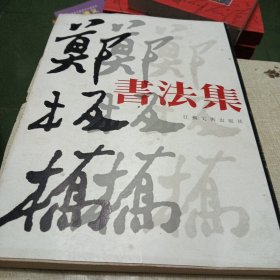 鄭板橋
書法集
江蘇美術出版社